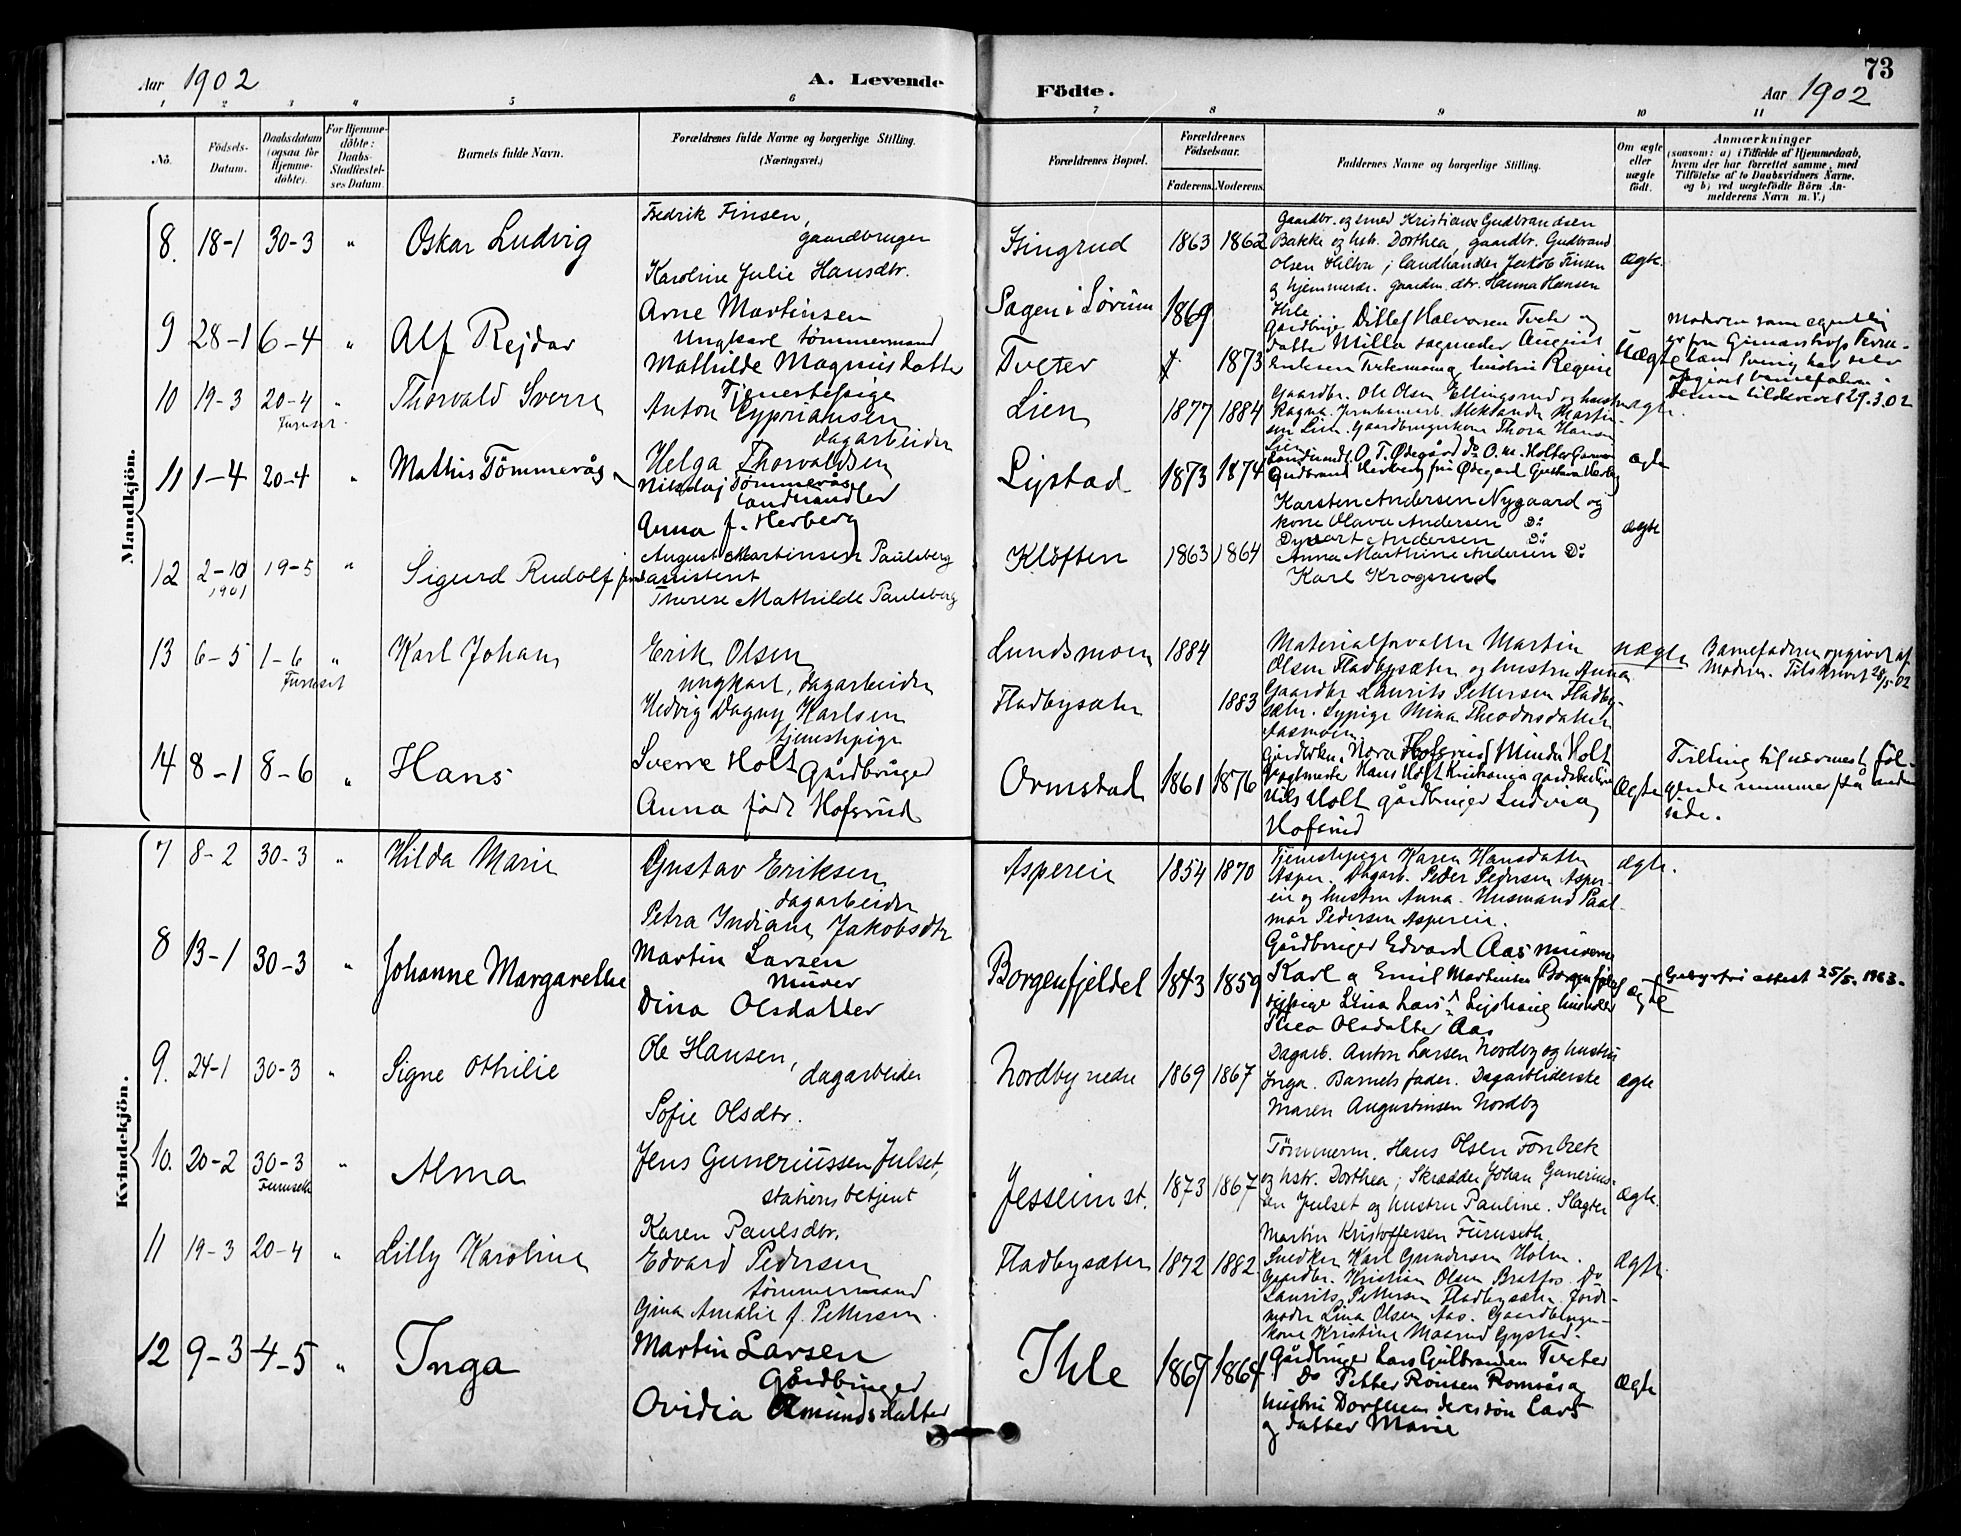 Aar 1902
A. Levende
Födte.
73
Aar 1902
1 2 3 4 5 6 7 8 9 10 11
No.
Födsels-Datum.
Daabsdatum (ogsaa for Hjemmedöbte).
For Hjemmedöbte: Daabs-Stadfæstelses Datum.
Barnets fulde Navn.
Forældrenes fulde Navne og borgerlige Stilling. (Næringsvei.)
Forældrenes Bopæl.
Forældrenes Födselsaar.
Faderens. Moderens.
Faddernes Navne og borgerlige Stilling.
Om ægte eller uægte födt.
Anmærkninger
(saasom: a) i Tilfælde af Hjemmedaab, hvem der har forrettet samme, med Tilföielse af to Daabsvidners Navne, og b) ved uægtefödte Börn Anmelderens Navn m. V.)
Mandkjön.
8. 18-1 30-3 " Oskar Ludvig
Fredrik Finsen,
gaardbruger
Karoline Julie Hansdtr.
1863 1862
Gaardbr. og smed Kristian Gudbrandsen
Bakke og hstr. Dorthea, gaardbr. Gudbrand
Olsen Hilton; landhandler Jakob Finsen
og hjemmev. gaarden. dtr. Hanna Hansen
Ihle
ægte.
9 28-1 6-4 " Alf Rejdar
Arne Martinsen
Ungkarl tömmermand
Mathilde Magnusdatter
Tjenestepige
Sagen i Sörum 1869
Tveter 1873
Gårdbruger Ditlef Halvorsen Tveter og
datter Milla sagmester August
hustru Regine
Uægte
Moderen som egentlig
er fra
opgivet barnefaderen.
Denne tilskrevet 29.3.02
10 19-3 20-4 " Thorvald Sverre
Furuset.
Anton Cypriansen
dagarbeider
Helga Thorvaldsen
Lien 1877 1884
Gaardbr. Ole Olsen Ellingsrud og hustru
Ragna. Jernbanearb. Aleksander Martin-
sen Lien. Gaardbrugerkone Thora Hansen
Lien
ægte.
11 1-4 20-4 " Mathis Tömmerås
Nikolaj Tömmerås
Landhandler
Anna f. Herberg
Lystad 1873 1874
O. T. Ødegård Do O. M. Holter
Gudbrand Herberg frú Ødegård Gustava Herberg
ægte
12 2-10 1901 19-5 " Sigurd Rudolf
August Martinsen Paulsberg
assistent
Therese Mathilde Paulsberg
Klöften 1863 1864
Karsten Andersen Nygaard og
kone Olava Andersen Do
Andersen Do
Anna Marthine Andersen Do
Karl Krogsrud
ægte
13 6-5 1-6 " Karl Johan
Furuset
Erik Olsen
ungkarl, dagarbeider
Hedvig Dagny Karlsen
tjenestepige
Lundsmoen 1884
Fladbysæter 1883
Materialforvalter Martin
Olsen Fladbysæter og hustru Anna
Gaardbr Laurits Pettersen Fladby-
sæter. Sypige Mina Theodorsdatter
Aasmoen
uægte
Barnefaderen opgivet af
Moderen. Tilskrevet 28/5 02
14 8-1 8-6 " Hans
Sverre Holt Gårdbruger
Anna födt Hofsrud
Ormstad 1861 1876
Nora Hofsrud Minda Holt
Hans Holt Kristiania
Nils Holt gårdbruger Ludvig
Hofsrud
Ægte
Tvilling til nærmest föl-
gende nummer på anden
side.
Kvindekjön.
7 8-2 30-3 " Hilda Marie
Gustav Eriksen
dagarbeider
Petra Indiane Jakobsdtr
Aspereie 1854 1870
Tjenestepige Karen Hansdatter
Asper. Dagarb. Peder Pedersen Asper-
eie og hustru Anna. Husmand Paal
mar Pedersen Aspereie.
ægte.
8 13-1 30-3 " Johanne Margarethe
Martin Larsen
Murer
Dina Olsdatter
Borgenfjeldet 1843 1859
Gårdbruger Edvard Aas
Karl a Emil Martinsen Borgenfjeld
sypige Lina Lars
Thea Olsdatter Aas
ægte
attest 25/5. 1963.
9. 24-1 30-3 " Signe Othilie
Ole Hansen,
dagarbeider
Sofie Olsdtr.
Nordby nedre 1869 1867
Dagarb. Anton Larsen Nordby og hustru
Inga. Barnets fader. Dagarbeiderske
Maren Augustinsen Nordby
ægte
10. 20-2 30-3 " Alma
Furuseth
Jens Guneriussen Julset,
stationsbetjent
Karen Paulsdtr.
Jesseim st. 1873 1867
Tömmerm. Hans Olsen Fonbæk
og hstr. Dorthea; Skrædder Johan Guneriussen
Julset og hustru Pauline. Slagter
Martin Kristoffersen Furuseth
ægte.
11 19-3 20-4 " Lilly Karoline
Edvard Pedersen
tömmermand
Gina Amalie f. Pettersen.
Fladbysæter 1872 1882
Snedker Karl Gundersen Holm.
Gaardbr. Kristian Olsen Bratfos. Do
Laurits Pettersen Fladbysæter. Jord-
moder Lina Olsen Aas. Gaardbruger-
kone Kristine Maarud Gystad.
Ægte.
12 9-3 4-5 " Inga
Martin Larsen
Gårdbruger
Ovidia Amundsdatter
Ihle 1867 1864
Gårdbruger Lars Gulbrandsen Tveter
Do Petter Romsås og
hustru Dorthea deres sön Lars
og datter Marie
ægte